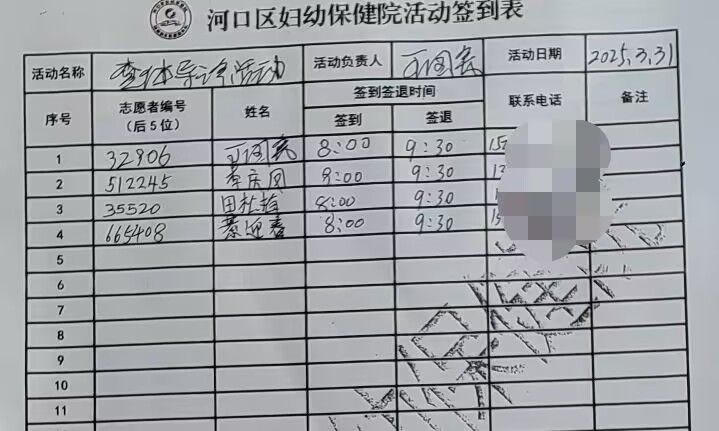 河口区妇幼保健院活动签到表
活动名称 查体导诊活动 活动负责人 活动日期 2025.3.31
序号 志愿者编号（后5位） 姓名 签到签退时间 联系电话 备注
签到 签退
1 32906 8:00 9:30
2 512245 8:00 9:30
3 35520 8:00 9:30
4 665408 8:00 9:30
5
6
7
8
9
10
11